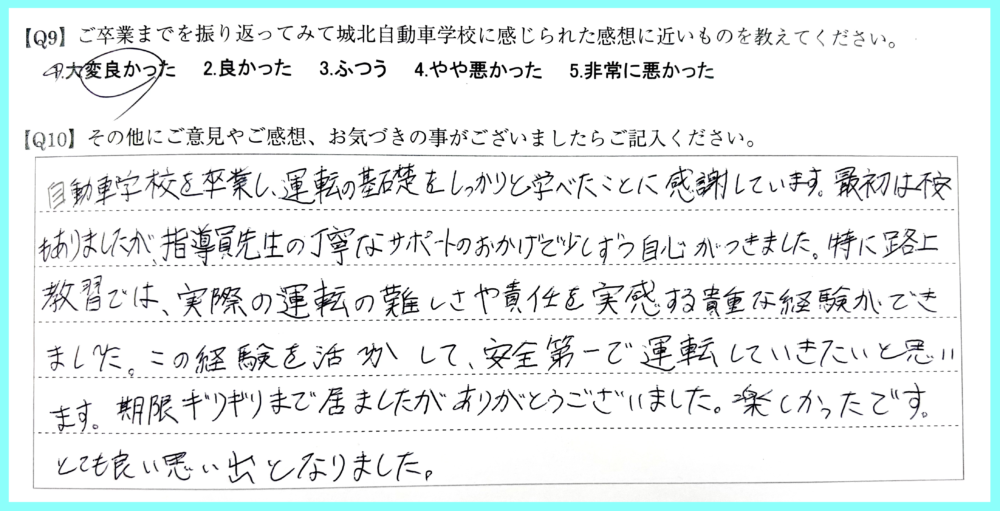 【Q9】ご卒業までを振り返ってみて城北自動車学校に感じられた感想に近いものを教えてください。
1.大変良かった 2.良かった 3.ふつう 4.やや悪かった 5.非常に悪かった
【Q10】その他にご意見やご感想、お気づきの事がございましたらご記入ください。
自動車学校を卒業し、運転の基礎をしっかりと学べたことに感謝しています。最初は不安
もありましたが、指導員先生の丁寧なサポートのおかげで少しずつ自心がつきました。特に路上
教習では、実際の運転の難しさや責任を実感する貴重な経験ができ
ました。この経験を活かして、安全第一で運転していきたいと思い
ます。期限ギリギリまで居ましたがありがとうございました。楽しかったです。
とても良い思い出となりました。